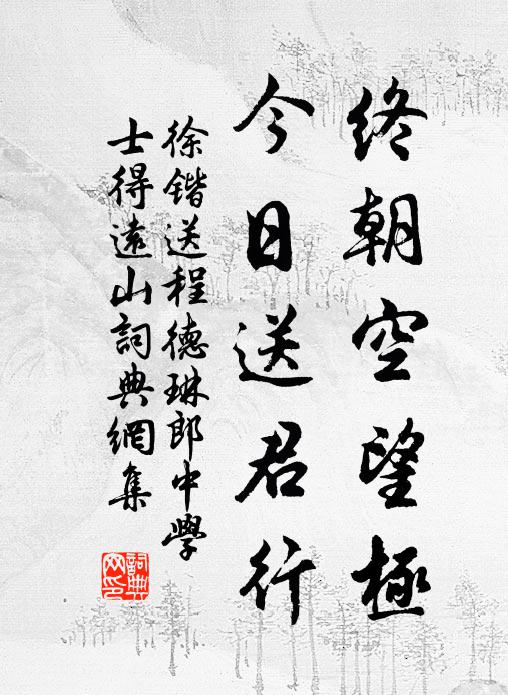 終朝空望極
今日送君行
徐鍇送程德琳郎中學
士得遠山詞典網集
詞典
网印